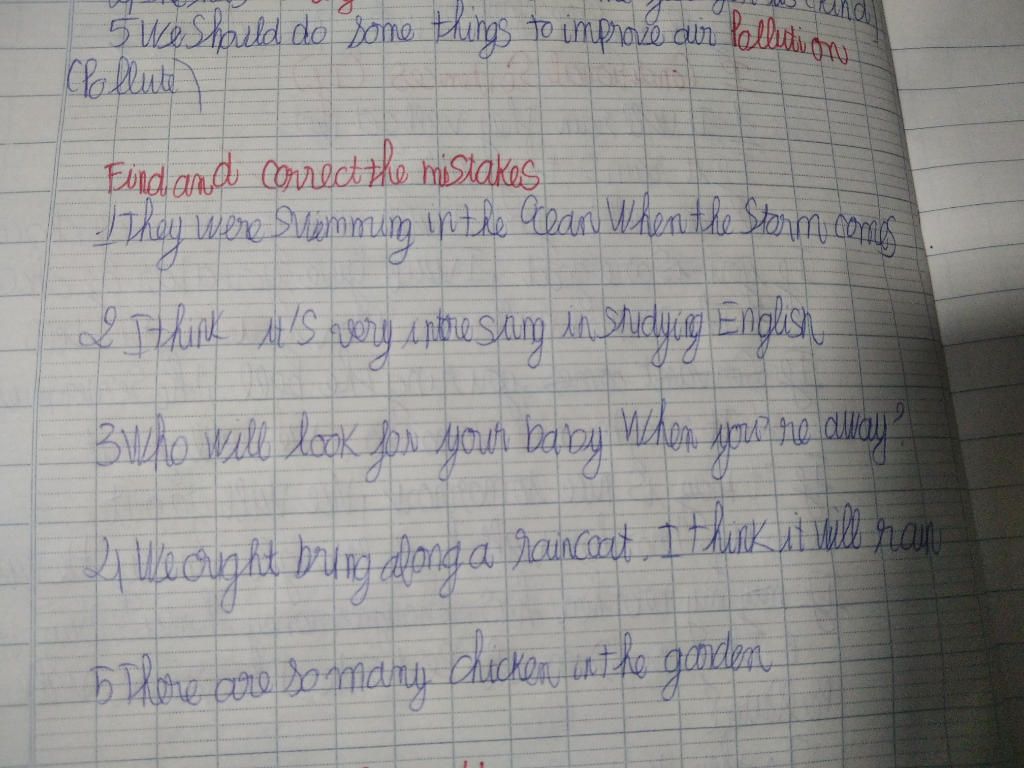 5 We should do some things to improve air Pollution
(Pollute)
Find and correct the mistakes
1 They were swimming in the Ocean When the Storm comes
2 I think it's very intresting in studying English
3 Who will look for your baby When you're away?
4 We ought bring along a raincoat. I think it will rain
5 There are so many chicken in the garden